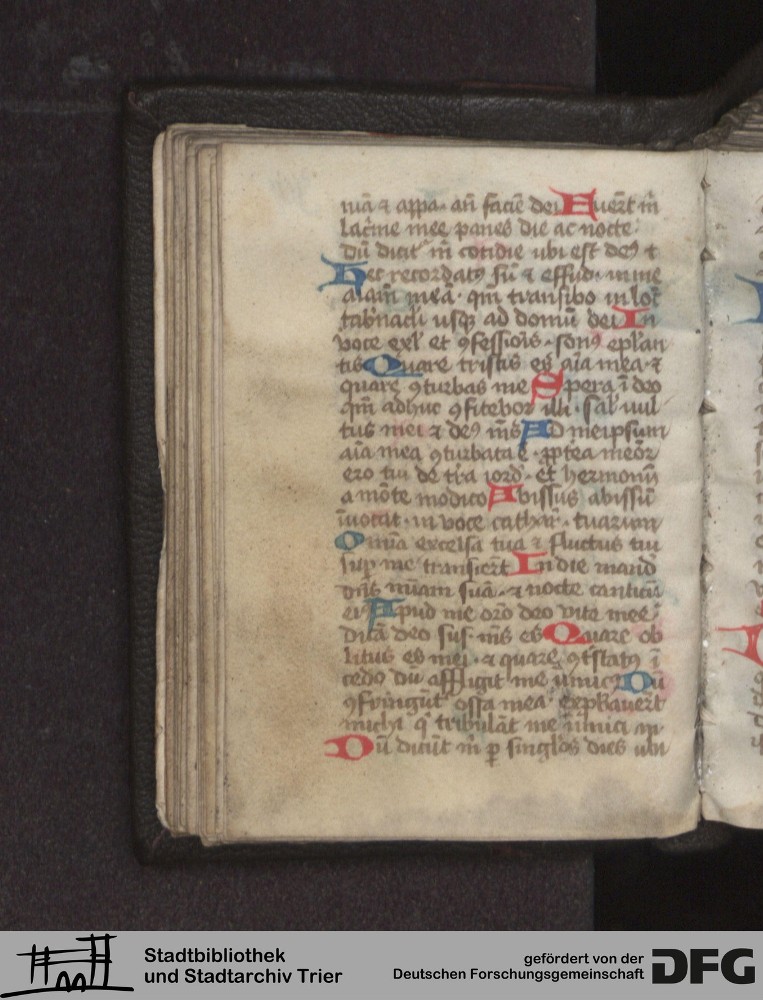 niā ⁊ appa· an̄ faciē dei Auer̄t m̄
lac̄ime mee panes die ac nocte·
dū dicit᷑ m̄ cotidie ubi est deꝰ t
Hec recordatꝰ sū ⁊ effud· in me
aīam meā· qm̄ transibo in loc̄
tab'nacl'i usqꝫ ad domū dei In
voce exl' et ꝯfessiōis· sonꝰ epl'an
tis Quare tristis es aīa mea· ⁊
quare ꝯturbas me Spera ī deo
qm̄ adhuc ꝯfitebor illi· sal' vul
tus mei ⁊ deꝰ m̄s AD meipsum
aīa mea ꝯturbata ē· ꝓpt'ea meōr
ero tui de t'ra iord· et hermonii
a mōte modico Abissus abissū
īuocat· in voce cathar̄· tuarum
Omīa excelsa tua ⁊ fluctus tui
sup̱ me transier̄t In die mand̄
dn̄s mīam suā· ⁊ nocte canticū
eiꝰ Apud me orō deo vite mee·
dicā deo sus· m̄s es Quare ob
litus es mei· ⁊ quare ꝯt'statꝰ ī
cedo dū affligit me inimicꝰ Dū
ꝯfringūt ossa mea· exprbauer̄t
michi qͥ tribulāt me inimici m̄
Dū dicūt m̄ ꝑ singl'os dies ubi
Stadtbibliothek
und Stadtarchiv Trier
gefördert von der
Deutschen Forschungsgemeinschaft
DFG